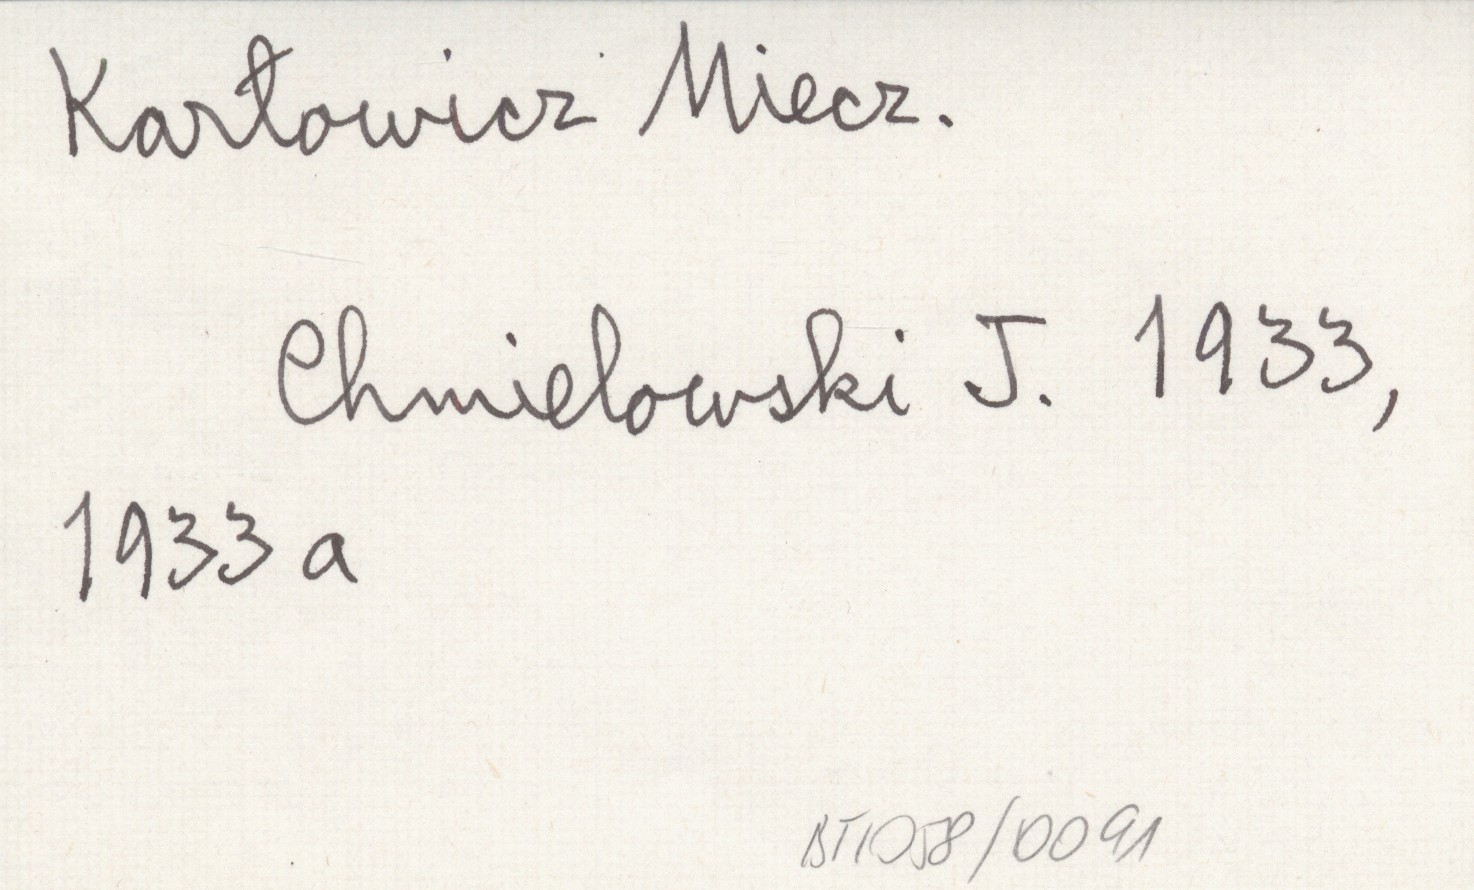 Karłowicz Miecz.
Chmielowski J. 1933,
1933 a
BT1058/0091